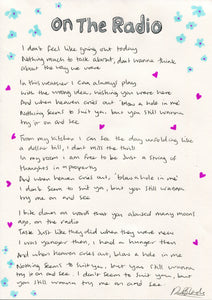 On The Radio
I don't feel like going out today
Nothing much to talk about, don't wanna think
About the way we were
In this weather I can always play
With the wrong idea, wishing you were here
And when heaven cries out 'blow a hole in me'
Nothing seems to suit ya, but you still wanna
try it on and see
From my kitchen I can see the day unfolding like
a dollar bill, I don't miss the thrill
In my room I am free to be just a string of
thoughts in
And when heaven cries out, 'blow a hole in me'
I don't seem to suit ya, but you still wanna
try me on and see
I bite down on words that you abused many moons
ago, on the radio
Taste just like they did when they were new
I was younger then, I had a hunger then
And when heaven cries out, blow a hole in me
Nothing seems to suit ya, but you still wanna
try it on and see. I don't seem to suit ya, but
you still wanna try me on and see.